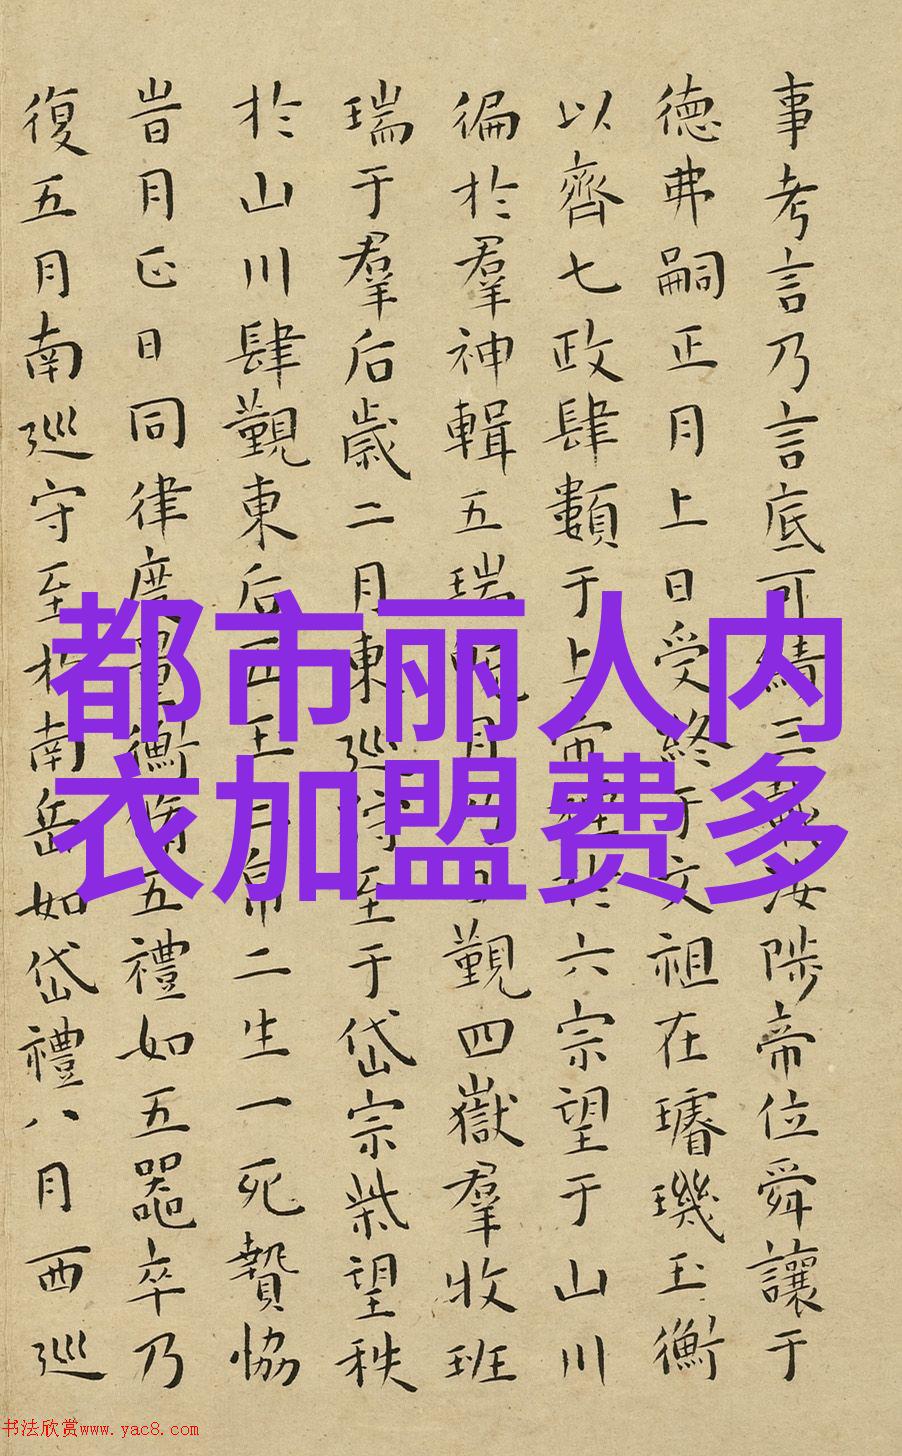 事考言乃言底可績三載汝陟帝位舜讓于
德弗嗣正月上日受終于文祖在璿璣玉衡
以齊七政肆類于上帝禋於六宗望于山川
徧於羣神輯五瑞既月乃日覲四嶽羣收班
瑞于羣后歲二月東巡狩至于岱宗柴望秩
於山川肆覲東后五玉三帛二生一死贄協
旹月正日同律度量衡脩五禮如五器卒乃
復五月南巡守至於南岳如岱禮八月西巡
都市丽人内
衣加盟费多
书法欣赏www.yac8.com